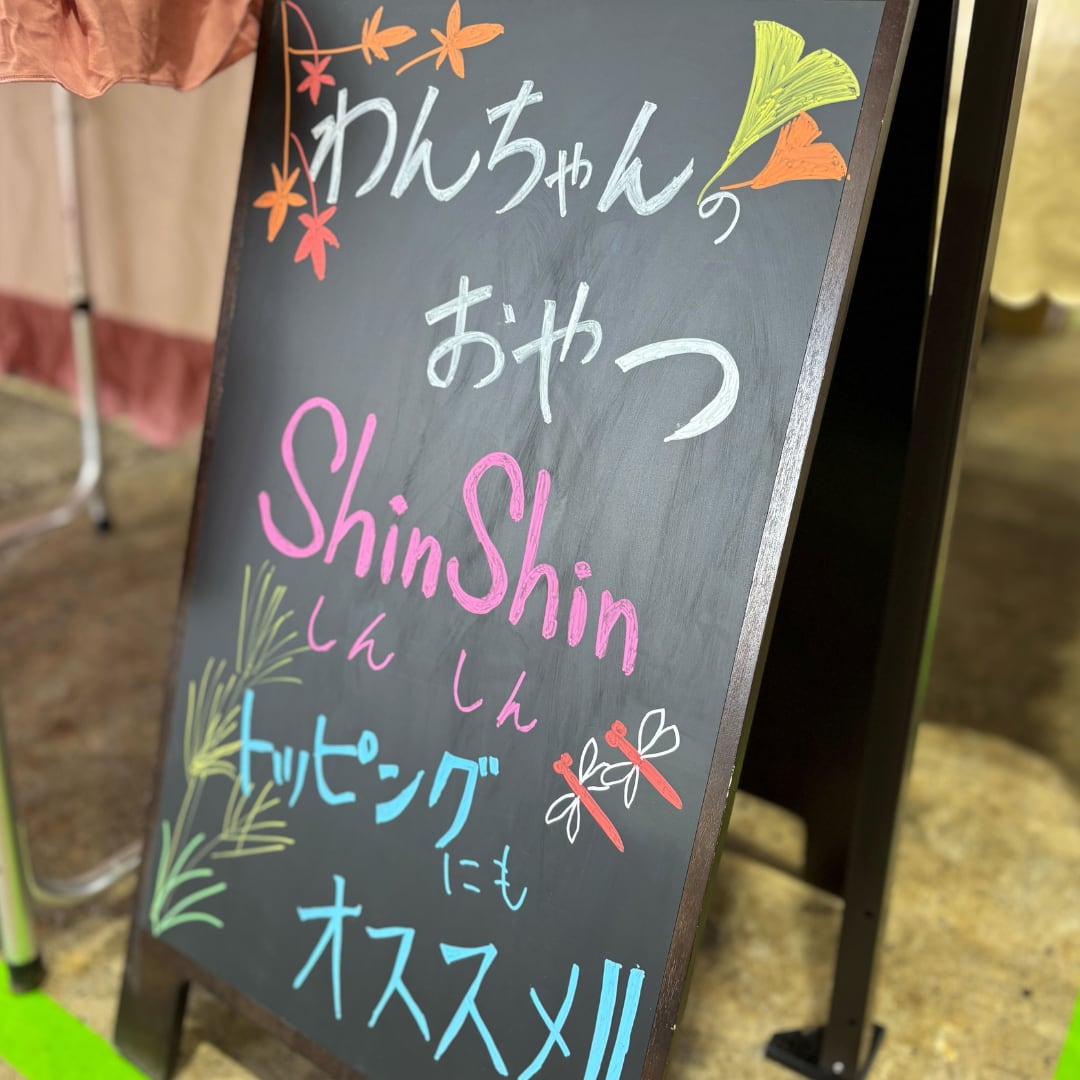 わんちゃんの
おやつ
ShinShin
しんしん
トッピング
にも
オススメ!!